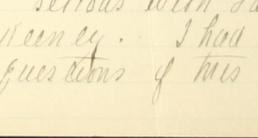 serious with
Keeney. I had
questions of his